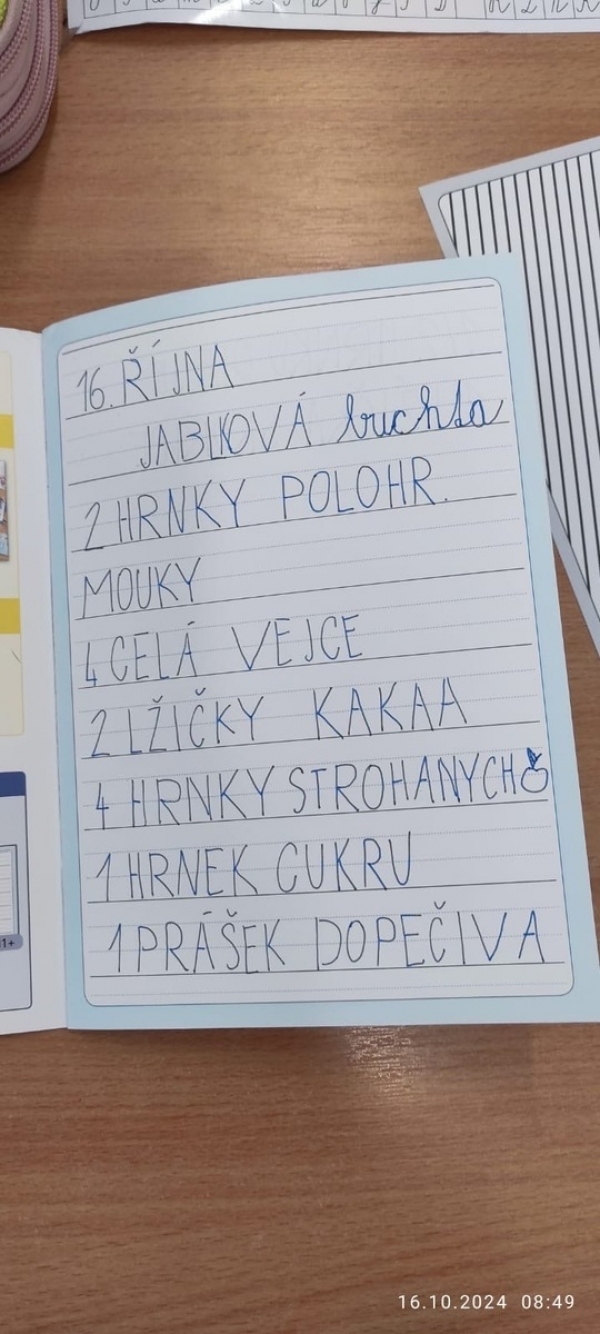 16. ŘÍJNA
JABLKOVÁ buchta
2 HRNKY POLOHR.
MOUKY
4 CELÁ VEJCE
2 LŽIČKY KAKAA
4 HRNKY STROHANYCH
1 HRNEK CUKRU
1 PRÁŠEK DOPEČIVA
1+
16.10.2024 08:49